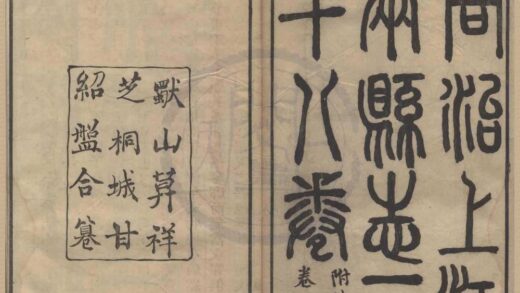 同治上江
兩縣志
十八卷
附
卷
獨山莫祥
芝桐城甘
紹盤合纂